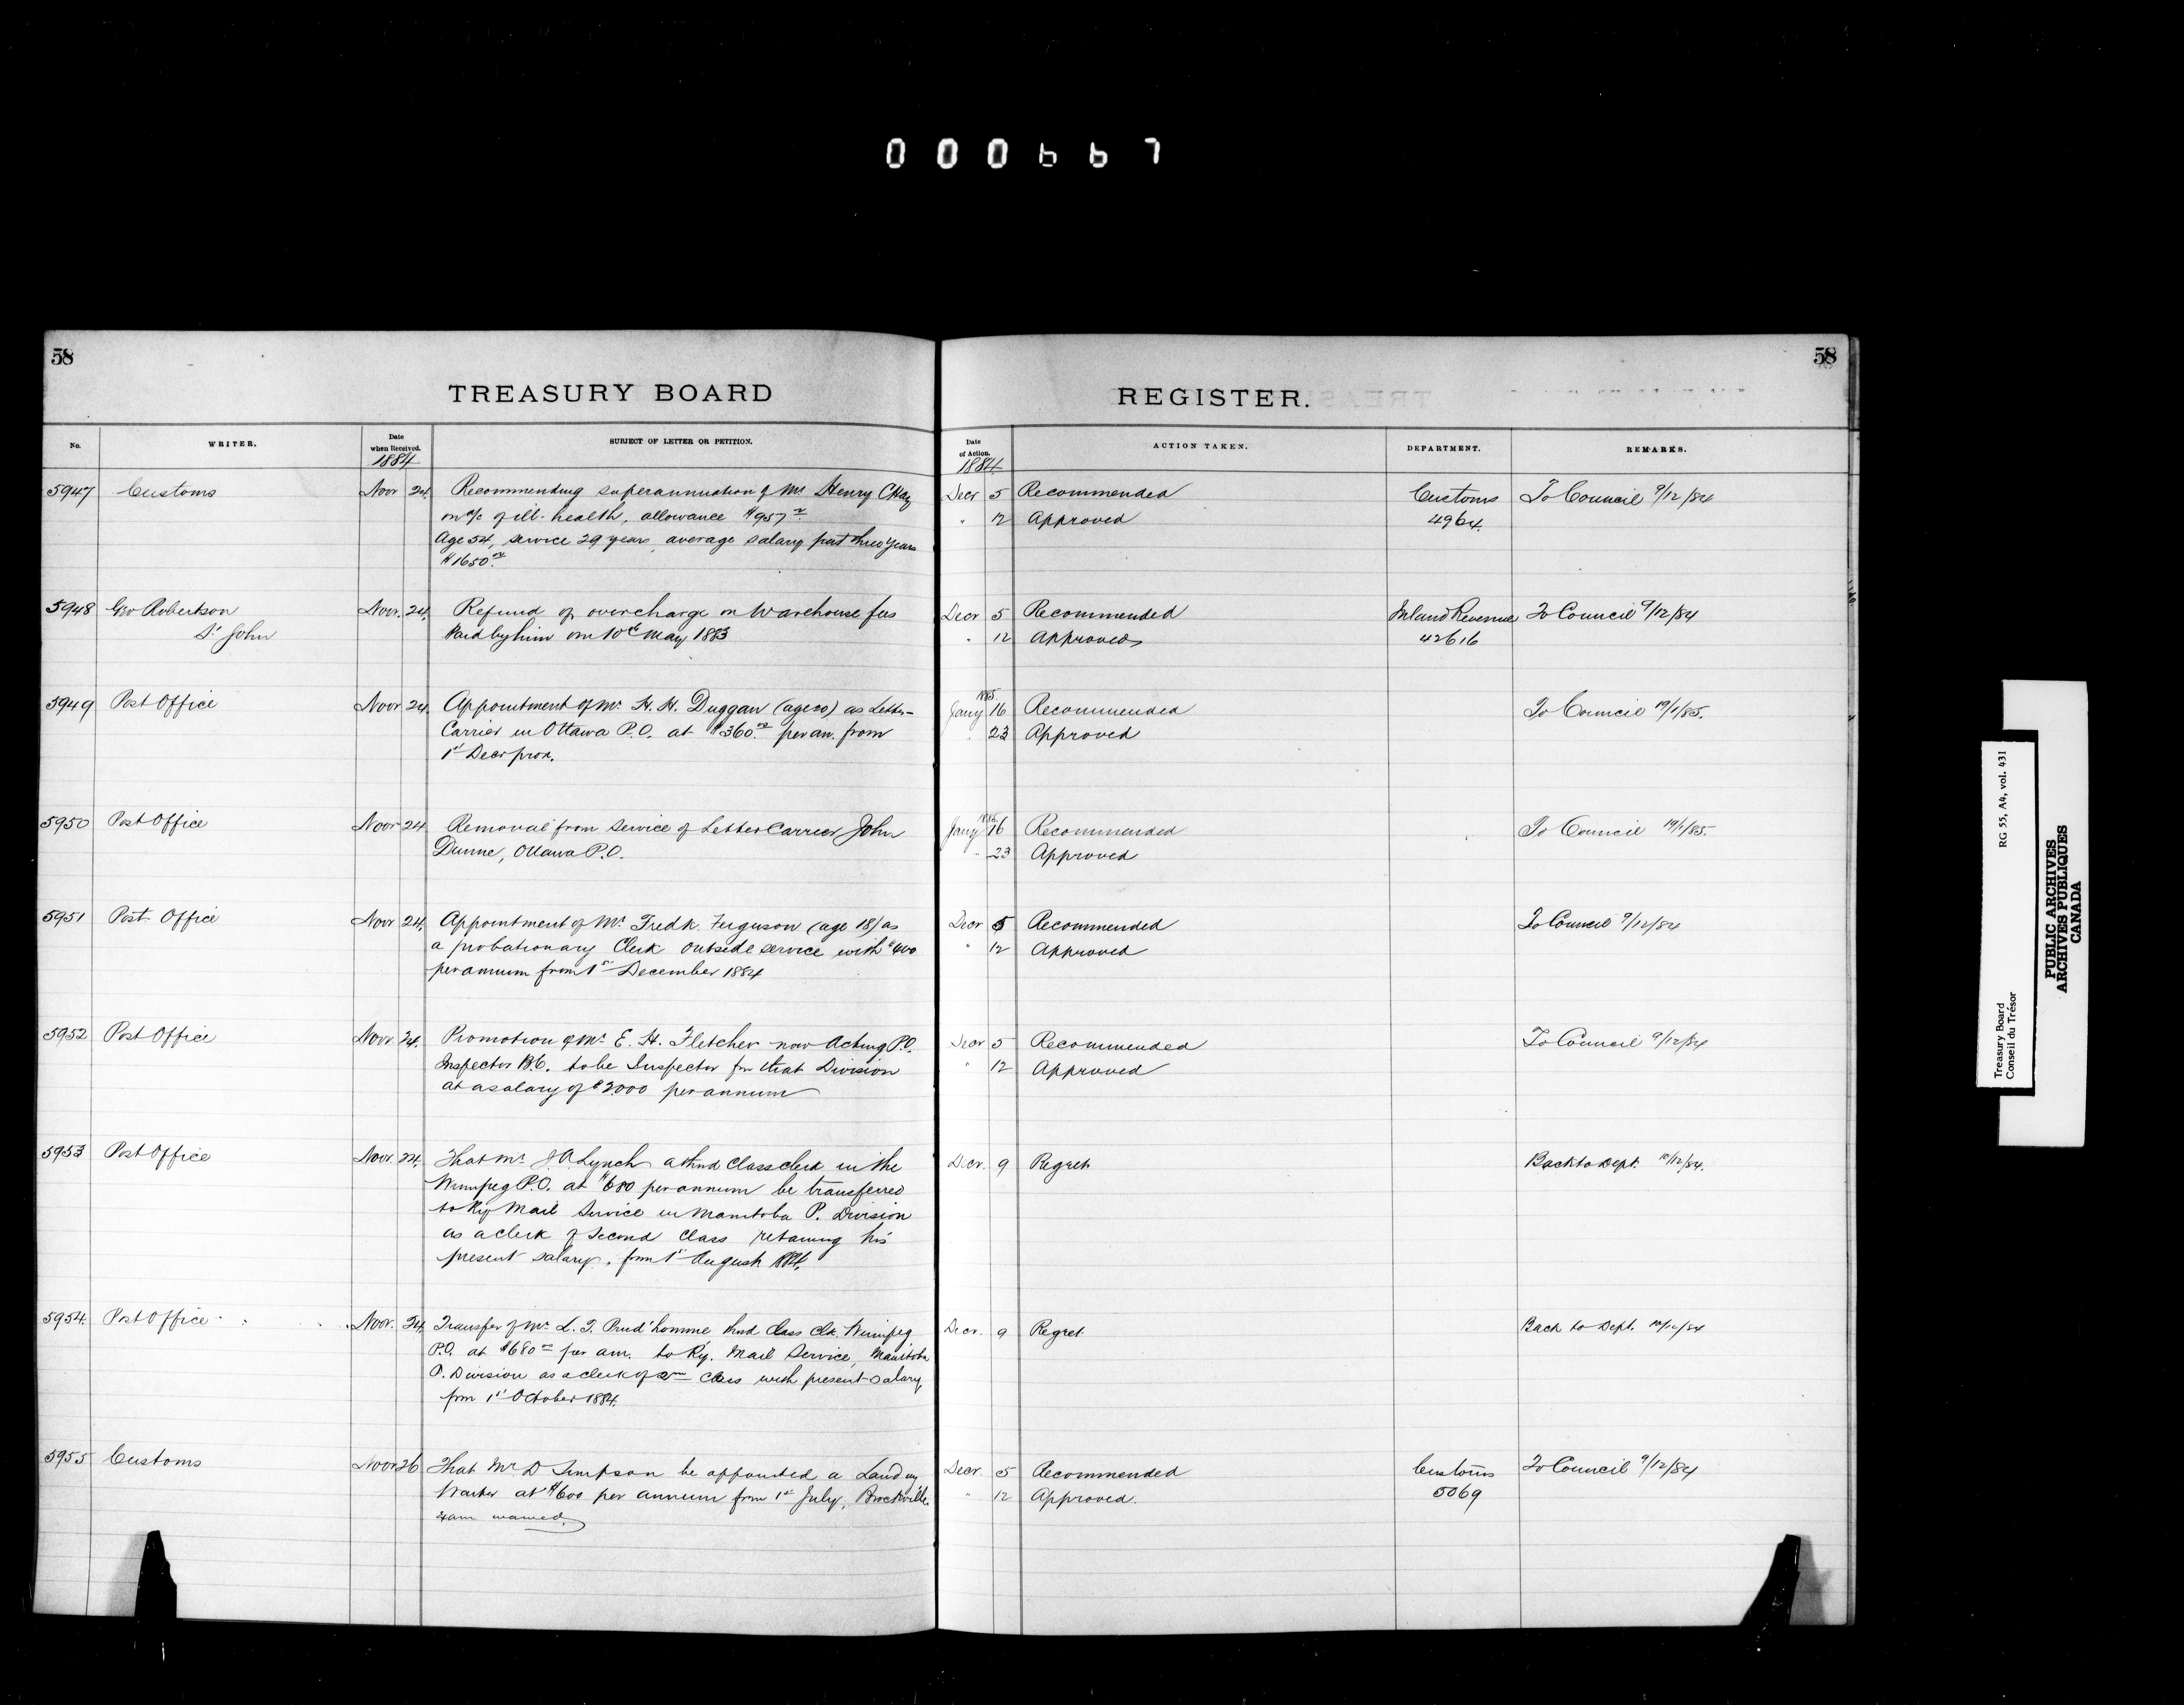 000667
58
58
TREASURY BOARD
REGISTER.
No.
WRITER.
Date
when Received.
1884
SUBJECT OF LETTER OR PETITION.
Date
of Action.
1884
ACTION TAKEN.
DEPARTMENT.
REMARKS.
5947 Customs Novr 24. Recommending superannuation of Mr Henry Decr 5 Recommended Customs To Council 9/12/84
on a/c of ill-health, allowance $957 " 12 Approved 4964.
Age 54, service 29 years, average salary past three years
$1650
5948 Geo Robertson Novr. 24. Refund of overcharge on Warehouse fees Decr 5 Recommended Inland Revenue To Council 9/12/84
St John Paid by him on 10th May 1883 " 12 Approved 42616
5949 Post Office Novr 24. Appointment of Mr H. H. Duggan (age 20) as Letter- 1885. Jany 16 Recommended To Council 19/1/85.
Carrier in Ottawa P.O. at $360 per an. from " 23 Approved
1st Decr prox.
5950 Post Office Novr 24 Removal from Service of Letter Carrier John 1885 Jany 16 Recommended To Council 19/1/85.
Dunne, Ottawa P.O. " 23 Approved
5951 Post Office Novr 24. Appointment of Mr Fredk. Ferguson (age 18) as Decr 5 Recommended To Council 9/12/84
a probationary Clerk outside service with $400 " 12 Approved
per annum from 1st December 1884
5952 Post Office Novr. 24. Promotion of Mr E. H. Fletcher now Acting P.O. Decr 5 Recommended To Council 9/12/84
Inspector B.C. to be Inspector for that Division " 12 Approved
at a salary of $2000 per annum
5953 Post Office Novr. 24. That Mr J. A. Lynch a third Class clerk in the Decr. 9 Regret Back to Dept. 10/12/84.
Winnipeg P.O. at $680 per annum be transferred
to Ry Mail Service in Manitoba P. Division
as a clerk of Second Class retaining his
present salary, from 1st August 1884.
5954. Post Office Novr. 24. Transfer of Mr L. J. Prud'homme third Class Clk. Winnipeg Decr. 9 Regret Back to Dept. 10/12/84
P.O. at $680 per an. to Ry. Mail Service, Manitoba
P. Division as a clerk of 2nd Class with present Salary
from 1st October 1884.
5955 Customs Novr 26 That Mr D Simpson be appointed a Landing Decr. 5 Recommended Customs To Council 9/12/84
Waiter at $600 per annum from 1st July, Brockville " 12 Approved. 5069
exam waived.
Treasury Board RG 55, A4, vol. 431
Conseil du Trésor
PUBLIC ARCHIVES
ARCHIVES PUBLIQUES
CANADA